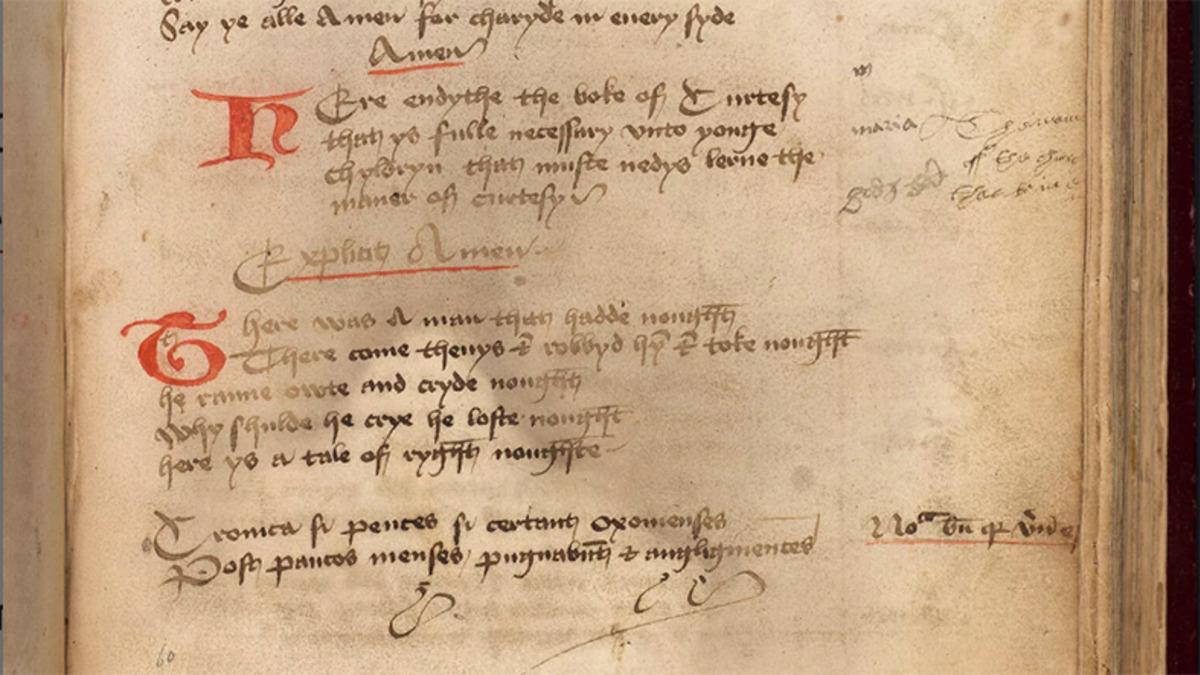 Say ye alle Amen for charyde in euery syde
Amen
HEre endythe the boke of Curtesy
that ys fulle necessary vnto yonge
chyldryn that muste nedys lerne the
maner of curtesy
Explicit Amen
There was a man that hadde nought
There come theuys & robbyd hym & toke nought
he ranne owte and cryde nought
Why shulde he crye he loste nought
here ys a tale of ryght noughte
Cronica si pences si certant oxonienses
Post paucos menses pugnabunt & angliginentes
maria
60